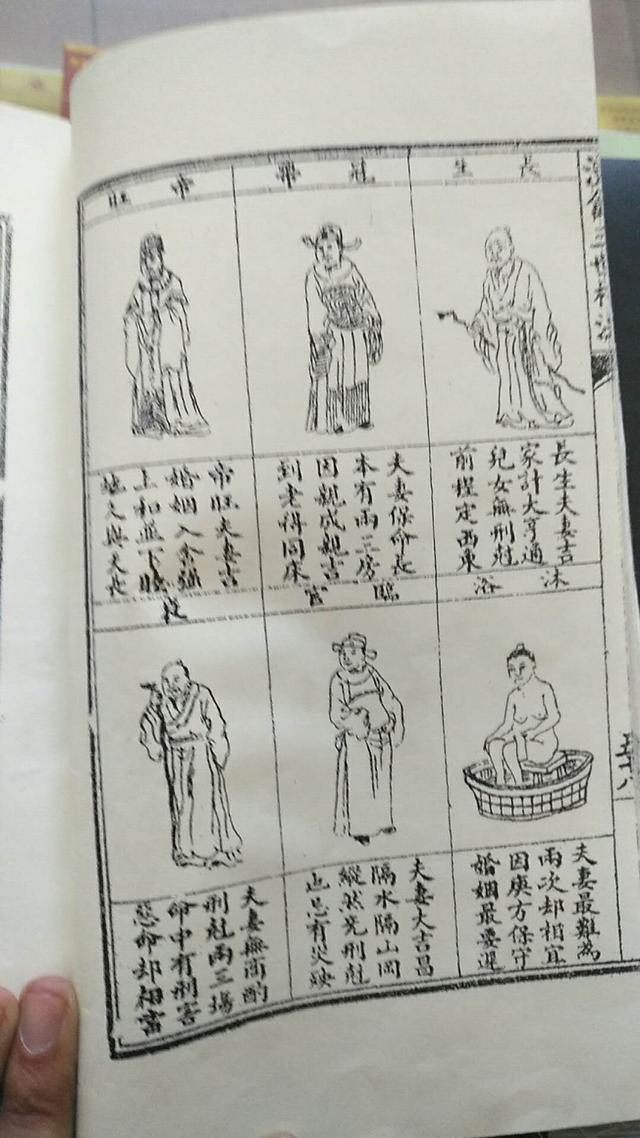 演禽三世相法
五十八
長生
長生夫妻吉
家計大亨通
兒女無刑尅
前程定西東
沐浴
夫妻最難為
兩次却相宜
因庚方保守
婚姻最要遲
冠帶
夫妻保命長
本有兩三房
因親成親吉
到老得同床
臨官
夫妻大吉昌
隔水隔山岡
縱然免刑尅
也忌有災殃
帝旺
帝旺夫妻吉
婚姻入舍強
上和並下睦
地久與天長
衰
夫妻無商酌
刑尅兩三場
命中有刑害
惡命却相當